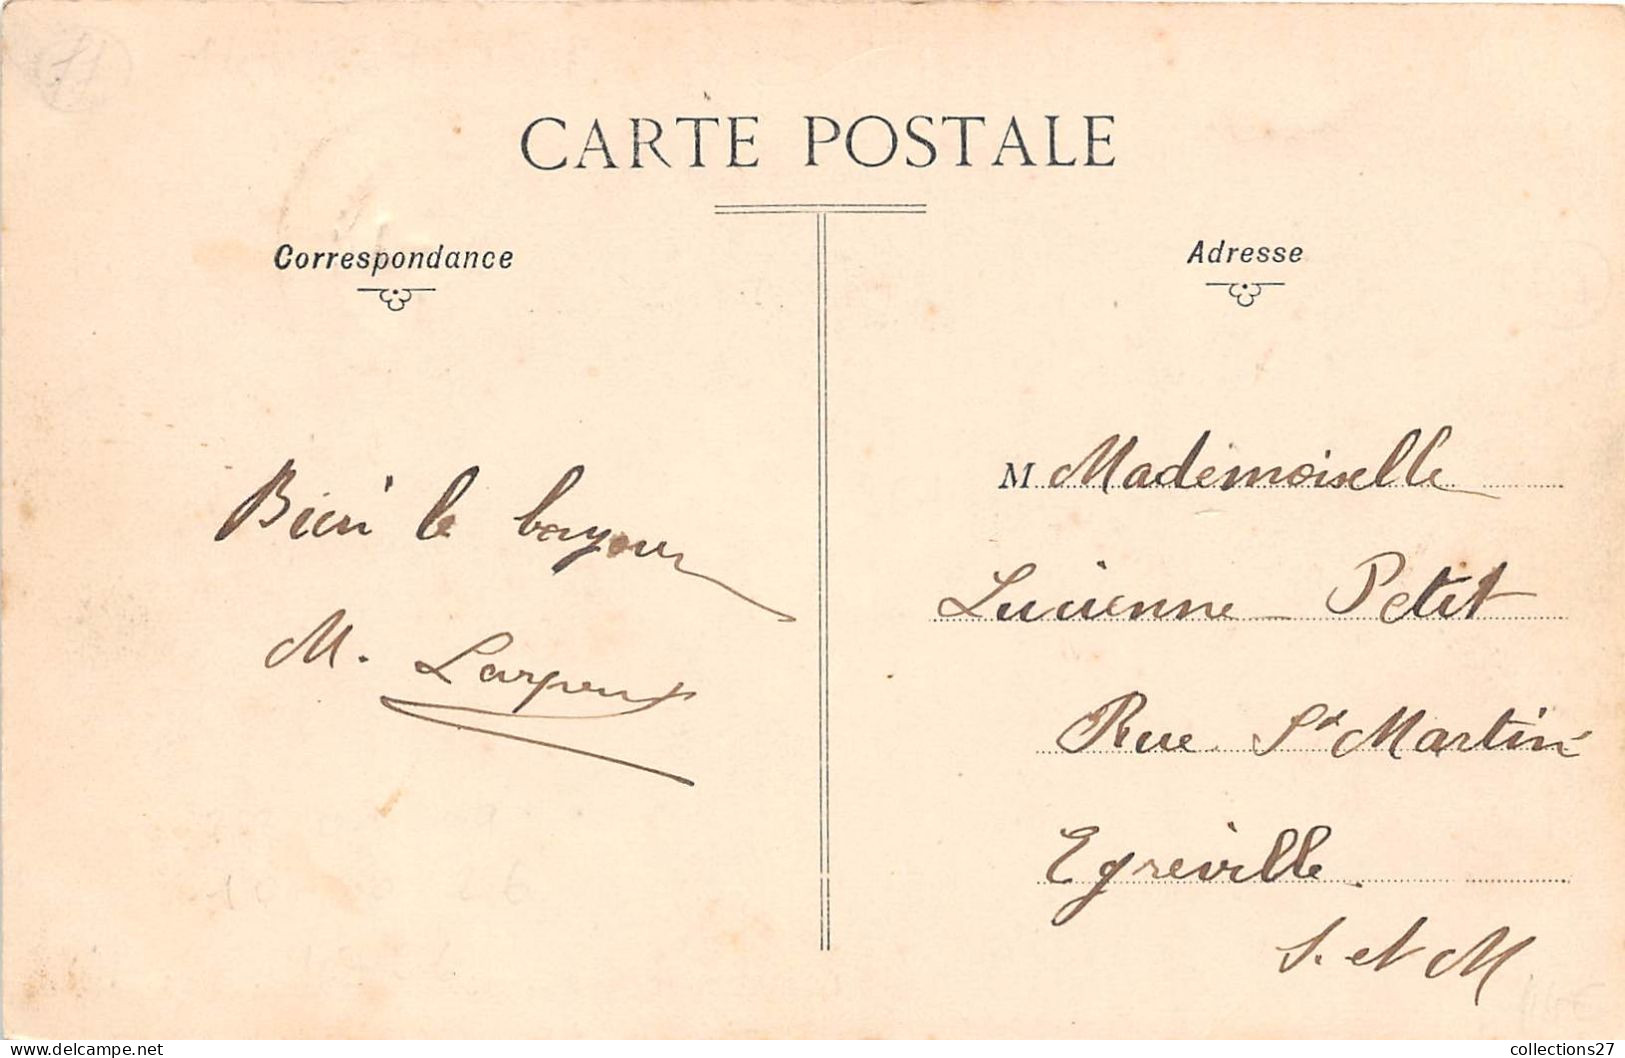 CARTE POSTALE
Correspondance
Adresse
Bien le bonjour
M. Larpent
M Mademoiselle
Lucienne Petit
Rue St Martin
Egreville
S. et M
collections27